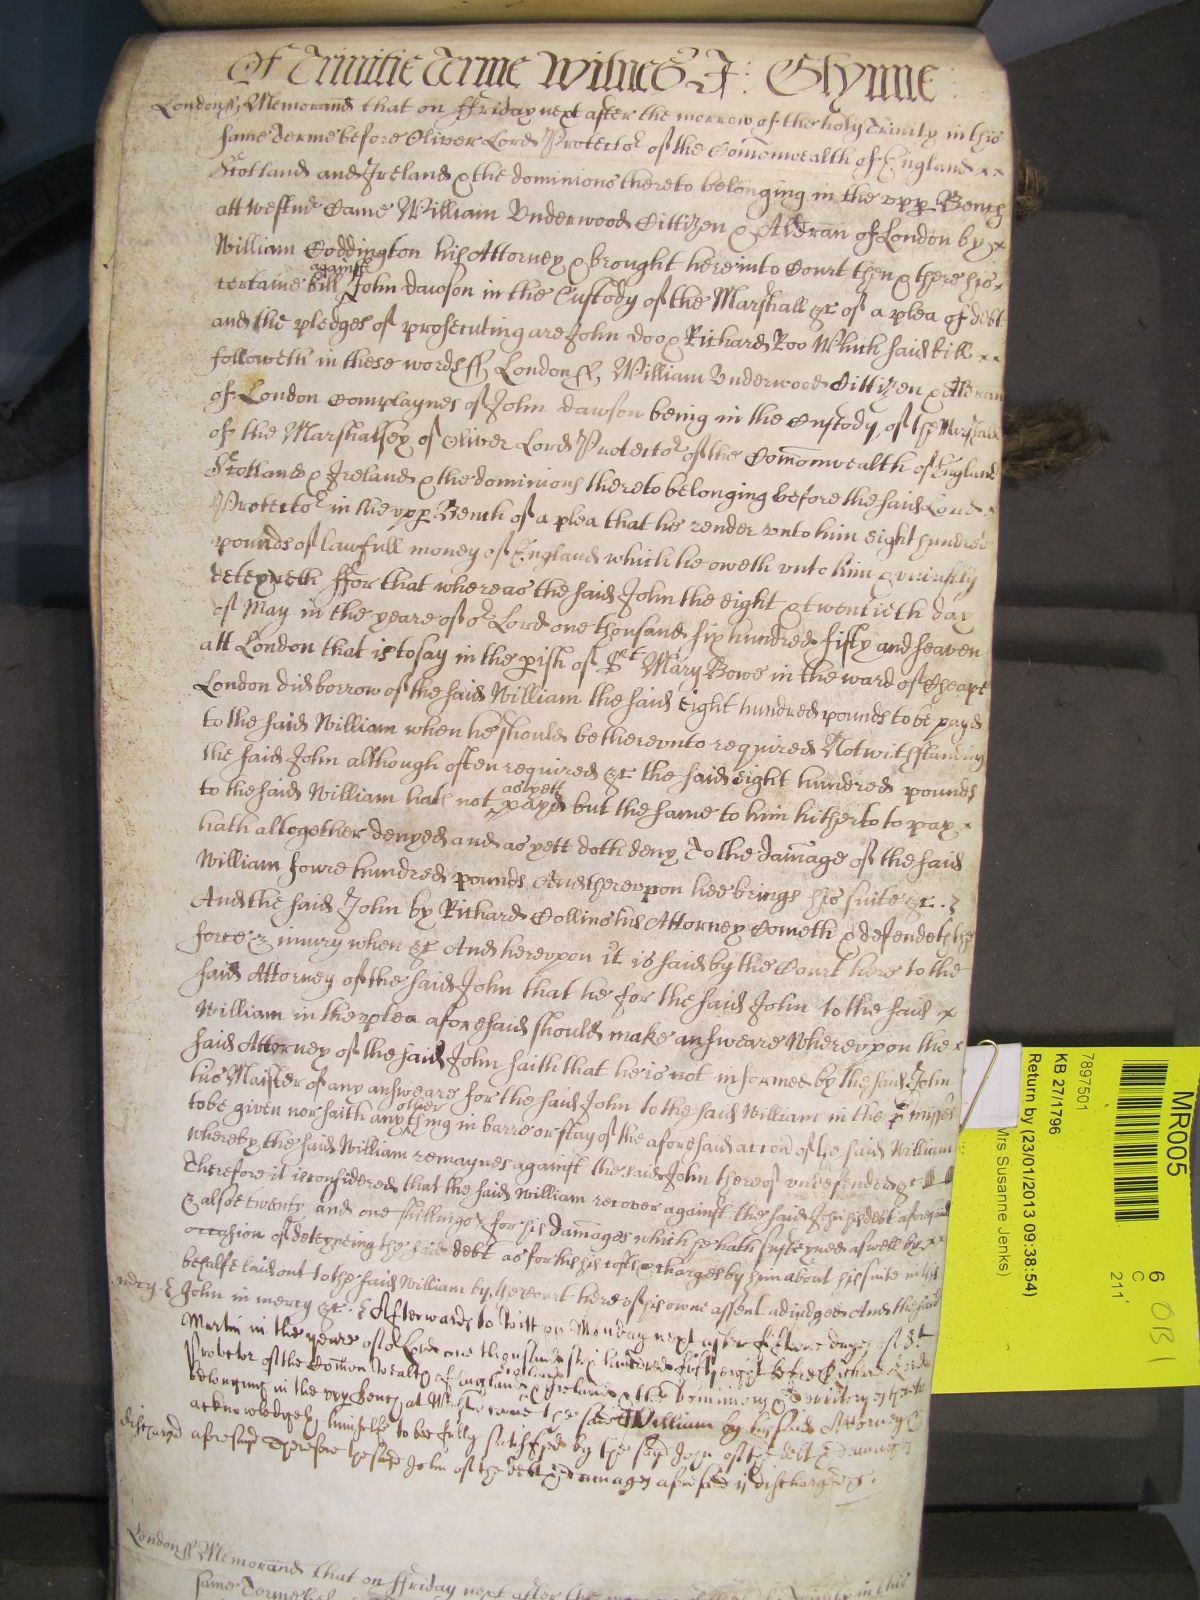 Of Trinitie Terme Witnes J: Glynne:
London ss, Memorand that on ffriday next after the morrow of the holy Trinity in this
same Terme before Oliver Lord Protector of the Comonwealth of England
Scotland and Ireland & the dominions thereto belonging in the upp Bench
att Westmr Came William Underwood Cittizen & Aldran of London by
William Coddington his Attorney & brought here into Court then & there his
against
certaine bill John dawson in the Custody of the Marshall &c of a plea of debt
and the pledges of prosecuting are John doo & Richard Roo Which said bill
followeth in these words ss, London ss, William Underwood Cittizen & Aldran
of London Complaynes of John dawson being in the Custody of the Marshall
of the Marshalsey of Oliver Lord Protector of the Comonwealth of England
Scotland & Ireland & the dominions thereto belonging before the said Lord
Protector in the upp Bench of a plea that he render unto him eight hundred
pounds of lawfull money of England which he oweth unto him & uniustly
deteyneth ffor that whereas the said John the eight & twentieth day
of May in the yeare of or Lord one thousand six hundred fifty and seaven
att London that is to say in the pish of St Mary Bowe in the ward of Cheape
London did borrow of the said William the said eight hundred pounds to be payd
to the said William when he should be thereunto required Notwithstanding
the said John although often required &c the said eight hundred pounds
as yett
to the said William hath not payd but the same to him hitherto to pay
hath altogether denyed and as yett doth deny To the damage of the said
William fowre hundred pounds And thereupon hee brings his suite &c
And the said John by Richard Collins his Attorney Cometh & defendeth the
force & iniury when &c And hereupon it is said by the Court here to the
said Attorney of the said John that he for the said John to the said
William in the plea aforesaid should make answeare Whereupon the
said Attorney of the said John saith that he is not informed by the said John
his Maister of any answeare for the said John to the said William in the pmisses
other
to be given nor saith any thing in barre or stay of the aforesaid accon of the said William
whereby the said William remaynes against the said John thereof undefended &c
Therefore it is considered that the said William recover against the said John his debt aforesaid
& alsoe twenty and one shillings for his damages which he hath susteyned aswell by
occasion of deteyneing the said debt as for his costs & charges by him about his suite in this
behalfe laid out to the said William by the court here of his owne assent adiudged And the said
mercy
John in mercy &c. Afterwards to witt on Monday next after fifteene dayes of St
Martin in the yeare of or Lord one thousand six hundred fifty eight before Richard Lord
Protector of the Comon Wealth of England Scotland & Ireland & the Dominions & Territoryes thereto
belonging in the upp Bench at Westmr came the said William by his said Attorney &
acknowledgeth himselfe to be fully satisfyed by the said John of the debt & damages
dischargd
aforesaid Therefore the said John of the debt & damages aforesaid is discharged &c.
London ss Memorand that on ffriday next after the morrow of the holy Trinity in this
same Terme
MR005
6
C
211'
OB1
7897501
KB 27/1796
Return by (23/01/2013 09:38:54)
Mrs Susanne Jenks)